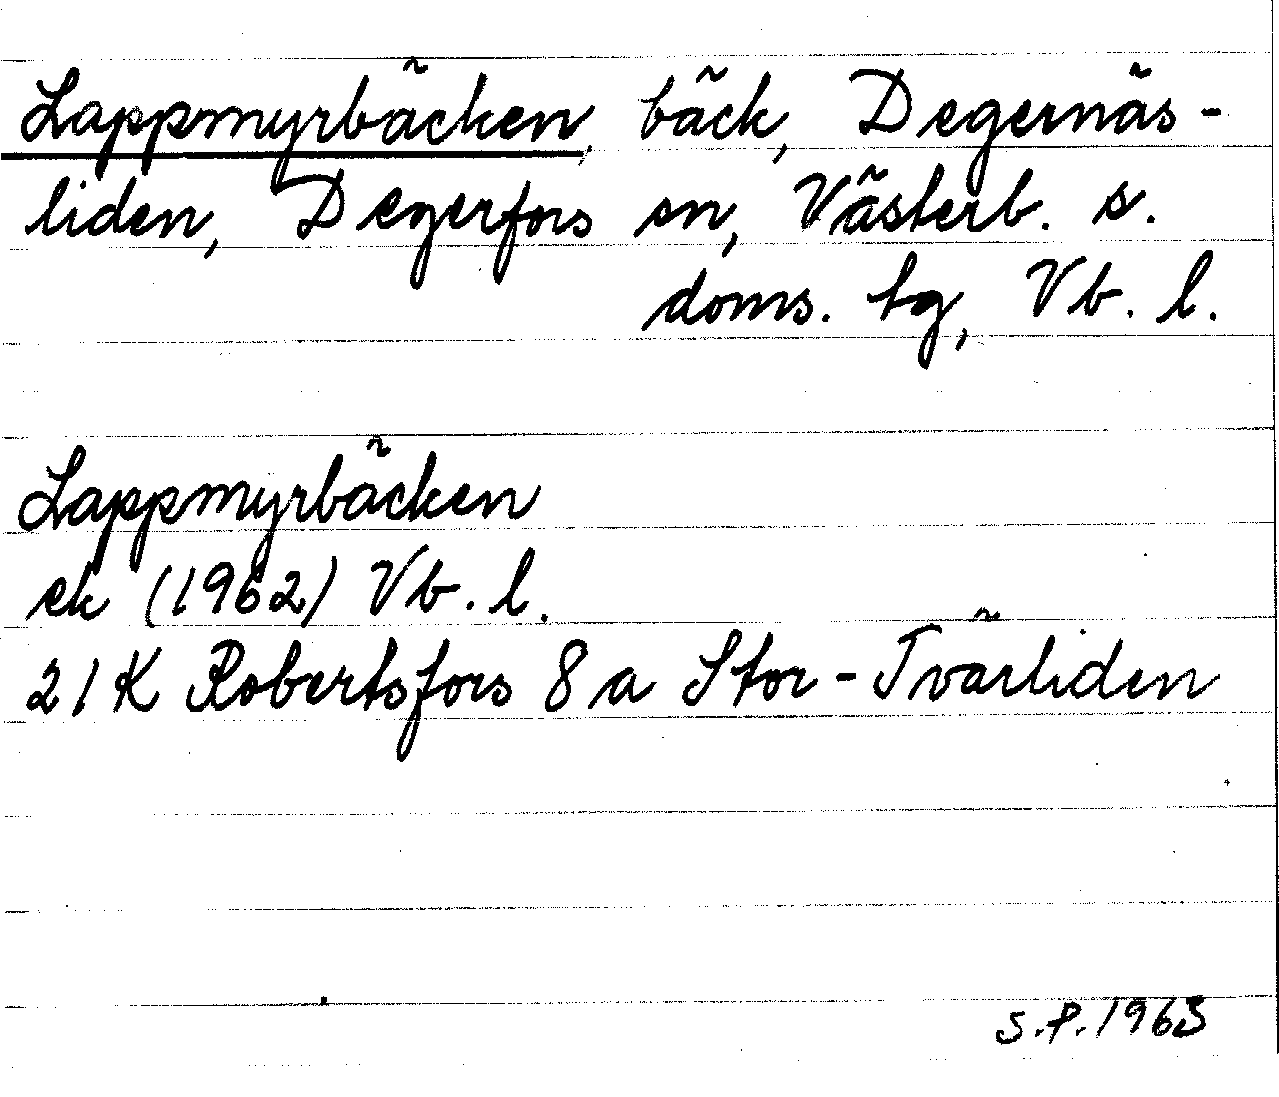 Lappmyrbäcken, bäck, Degernäs-
liden, Degerfors sn, Västerb. s.
doms. tg, Vb. l.
Lappmyrbäcken
ek (1962) Vb. l.
21K Robertsfors 8 a Stor-Tvärliden
S.P. 1963